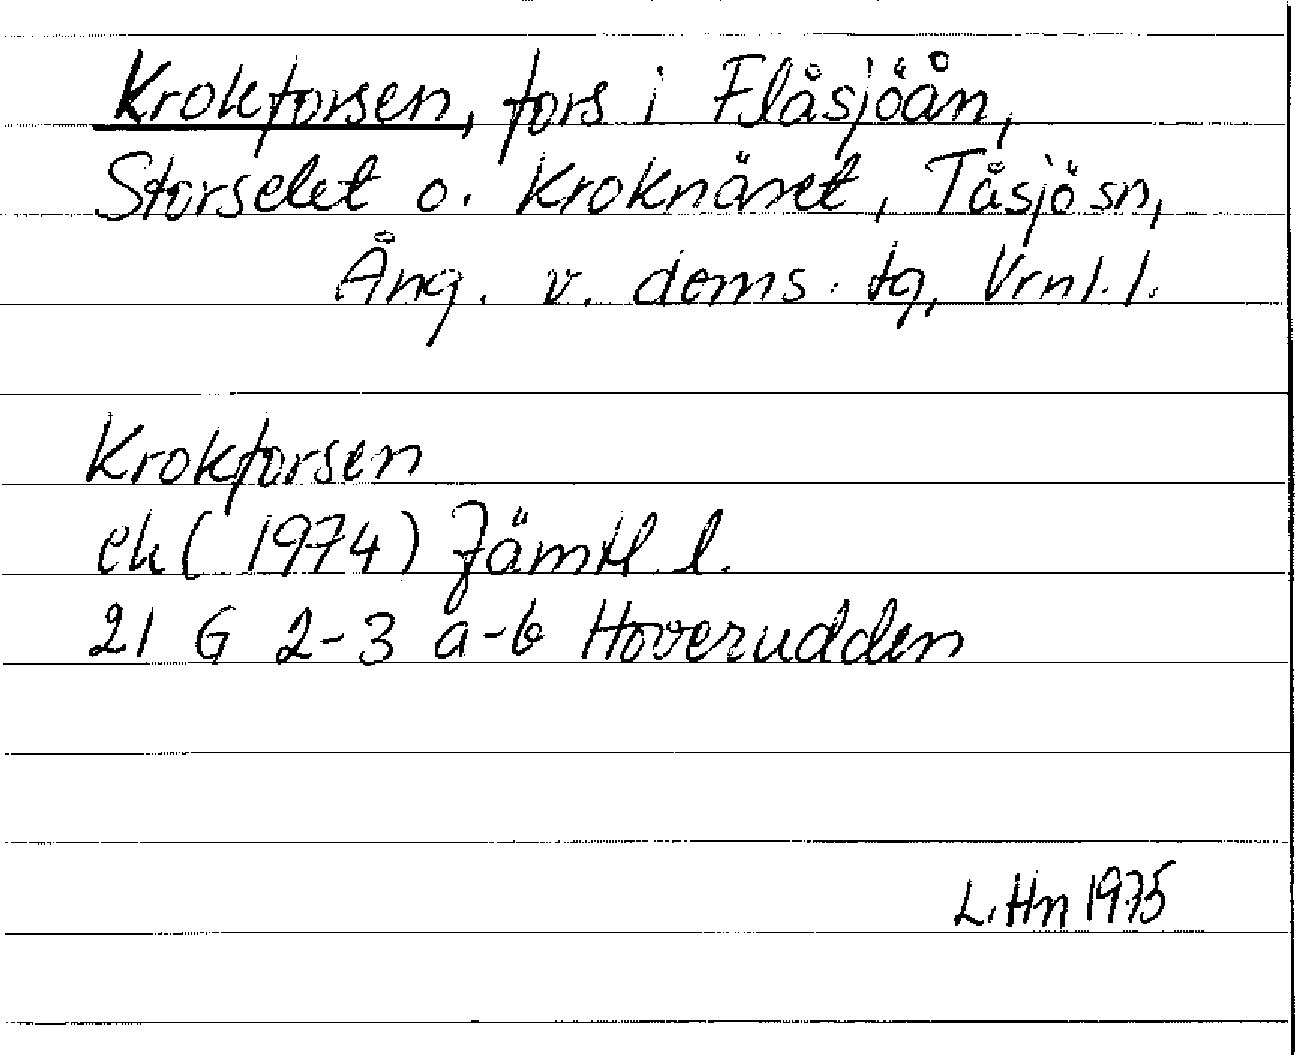 Krokforsen, fors i Flåsjöån,
Storselet o. Kroknäset, Tåsjö sn,
Ång. v. dems. tg, Vrnl. l.
Krokforsen
ek (1974) Jämtl. l.
21 G 2-3 a-b Hoverudden
L. Hn 1975